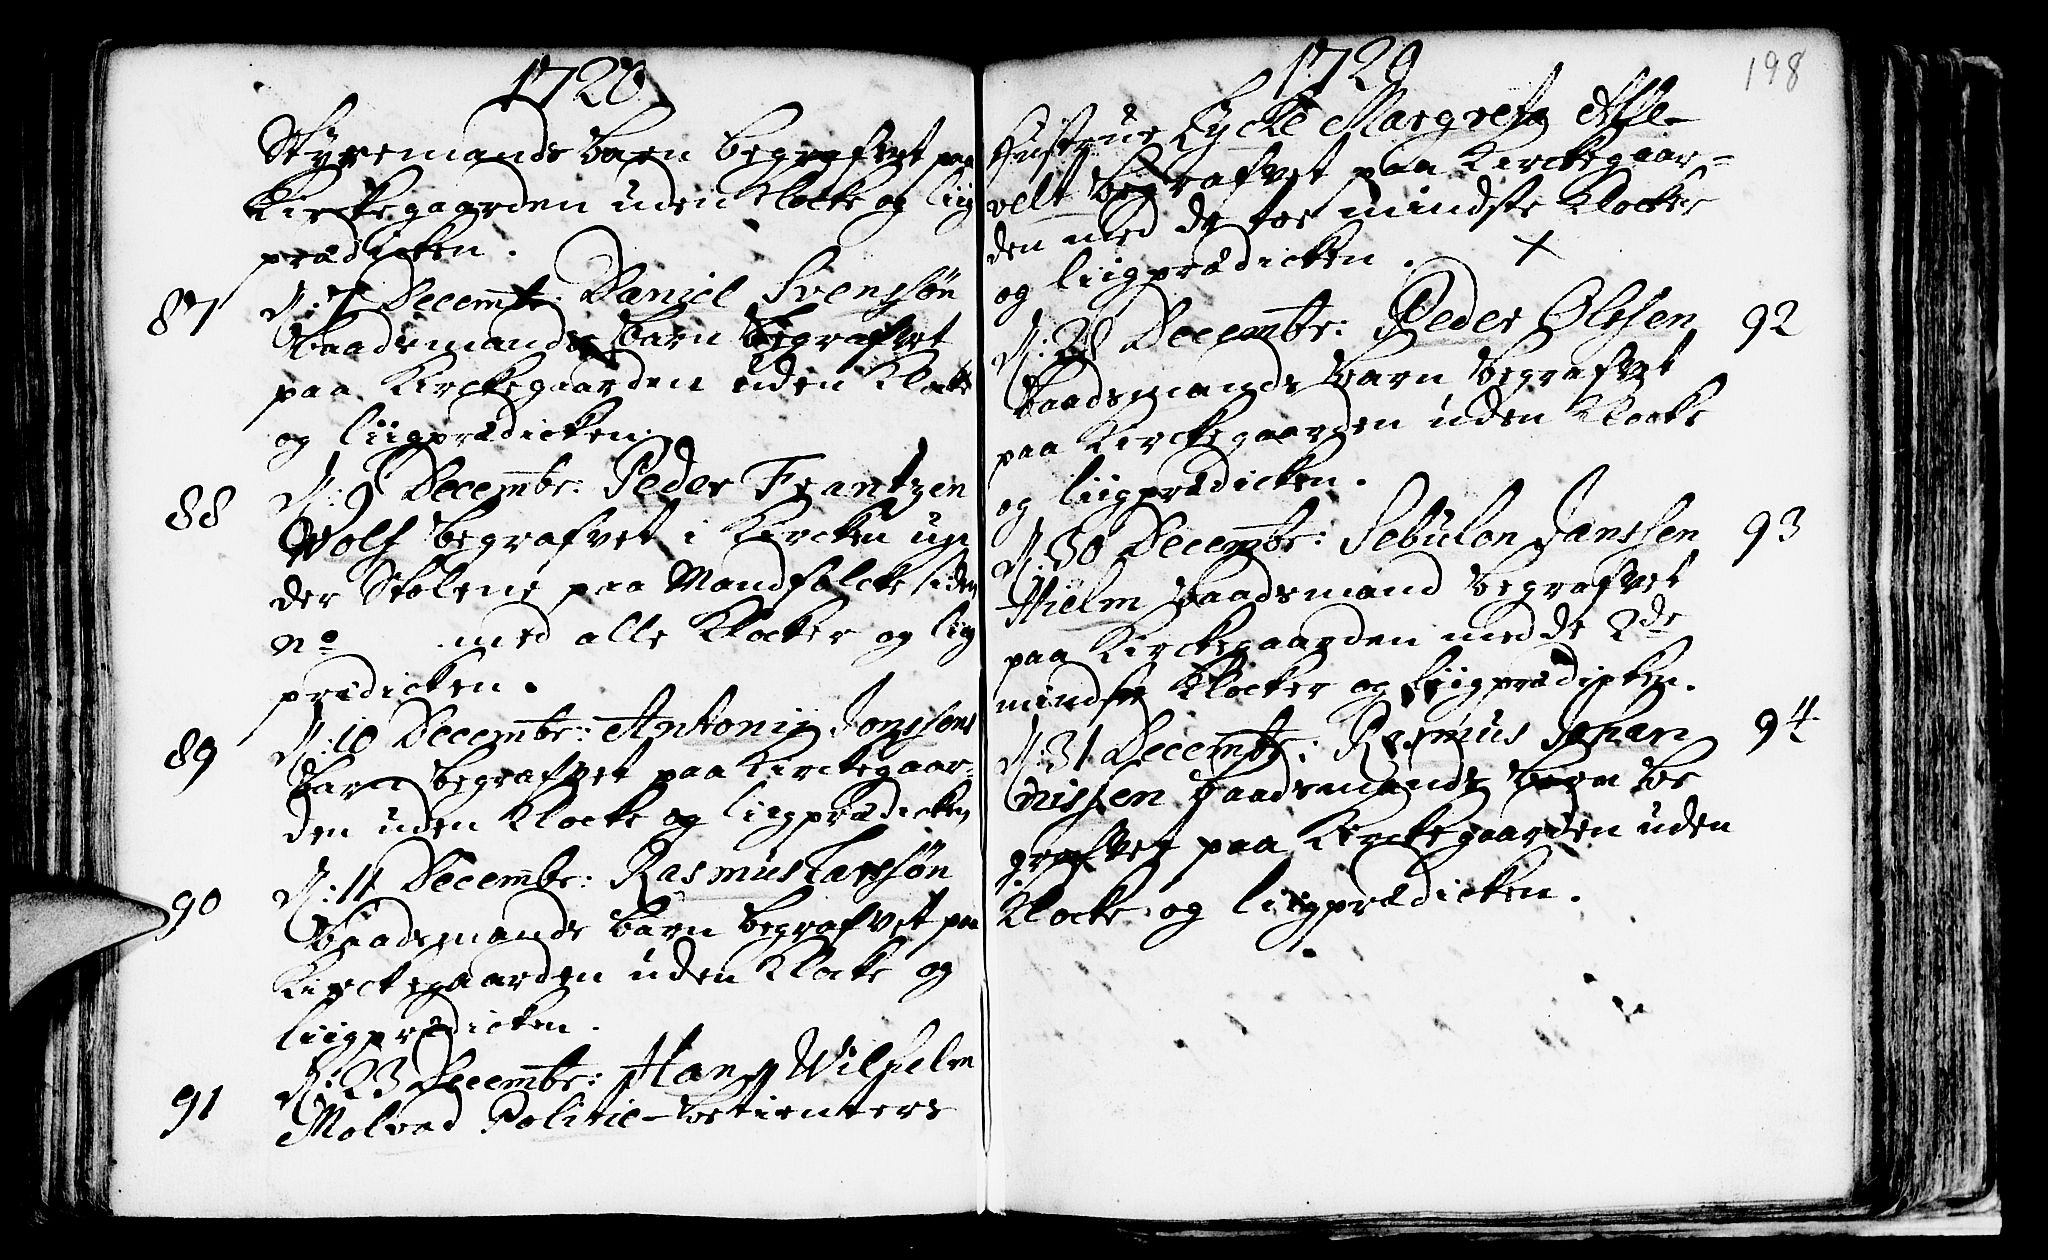 1720
Styremands barn begrafvet paa
Kirckegaarden uden Klocke og liig
prædicken.
87 d: 7 Decembr: Daniel Svenssøn
baadsmands barn begrafvet
paa Kirckegaarden uden Klocke
og liigprædicken.
88 d: 9 Decembr: Peder Frantzen
Wolf begrafvet i Kircken un
der Stolene paa Mandfolcke siden
No med alle Klocker og liig
prædicken.
89 d: 10 Decembr: Antoni Jonssøns
barn begrafvet paa Kirckegaar-
den uden Klocke og liigprædicken
90 d: 11 Decembr: Rasmus Larssøn
baadsmands barn begrafvet paa
Kirckegaarden uden Klocke og
liigprædicken.
91 d: 23 Decembr: Hans Wilhelm
Molvad Politie-betienters
1720
198
Hustrue Lycke Margreta
velt begrafvet paa Kirckegaar-
den med de toe mindste Klocker
og liigprædicken. +
d: 28 Decembr: Peder Olssen 92
baadsmands barn begrafvet
paa Kirckegaarden uden Klocke
og liigprædicken.
d: 30 Decembr: Sebulon Janssen 93
Hielm baadsmand begrafvet
paa Kirckegaarden med de 2de
mindste Klocker og liigprædicken.
d: 31 Decembr: Rasmus Johan 94
nissen baadsmands barn be
grafvet paa Kirckegaarden uden
Klocke og liigprædicken.